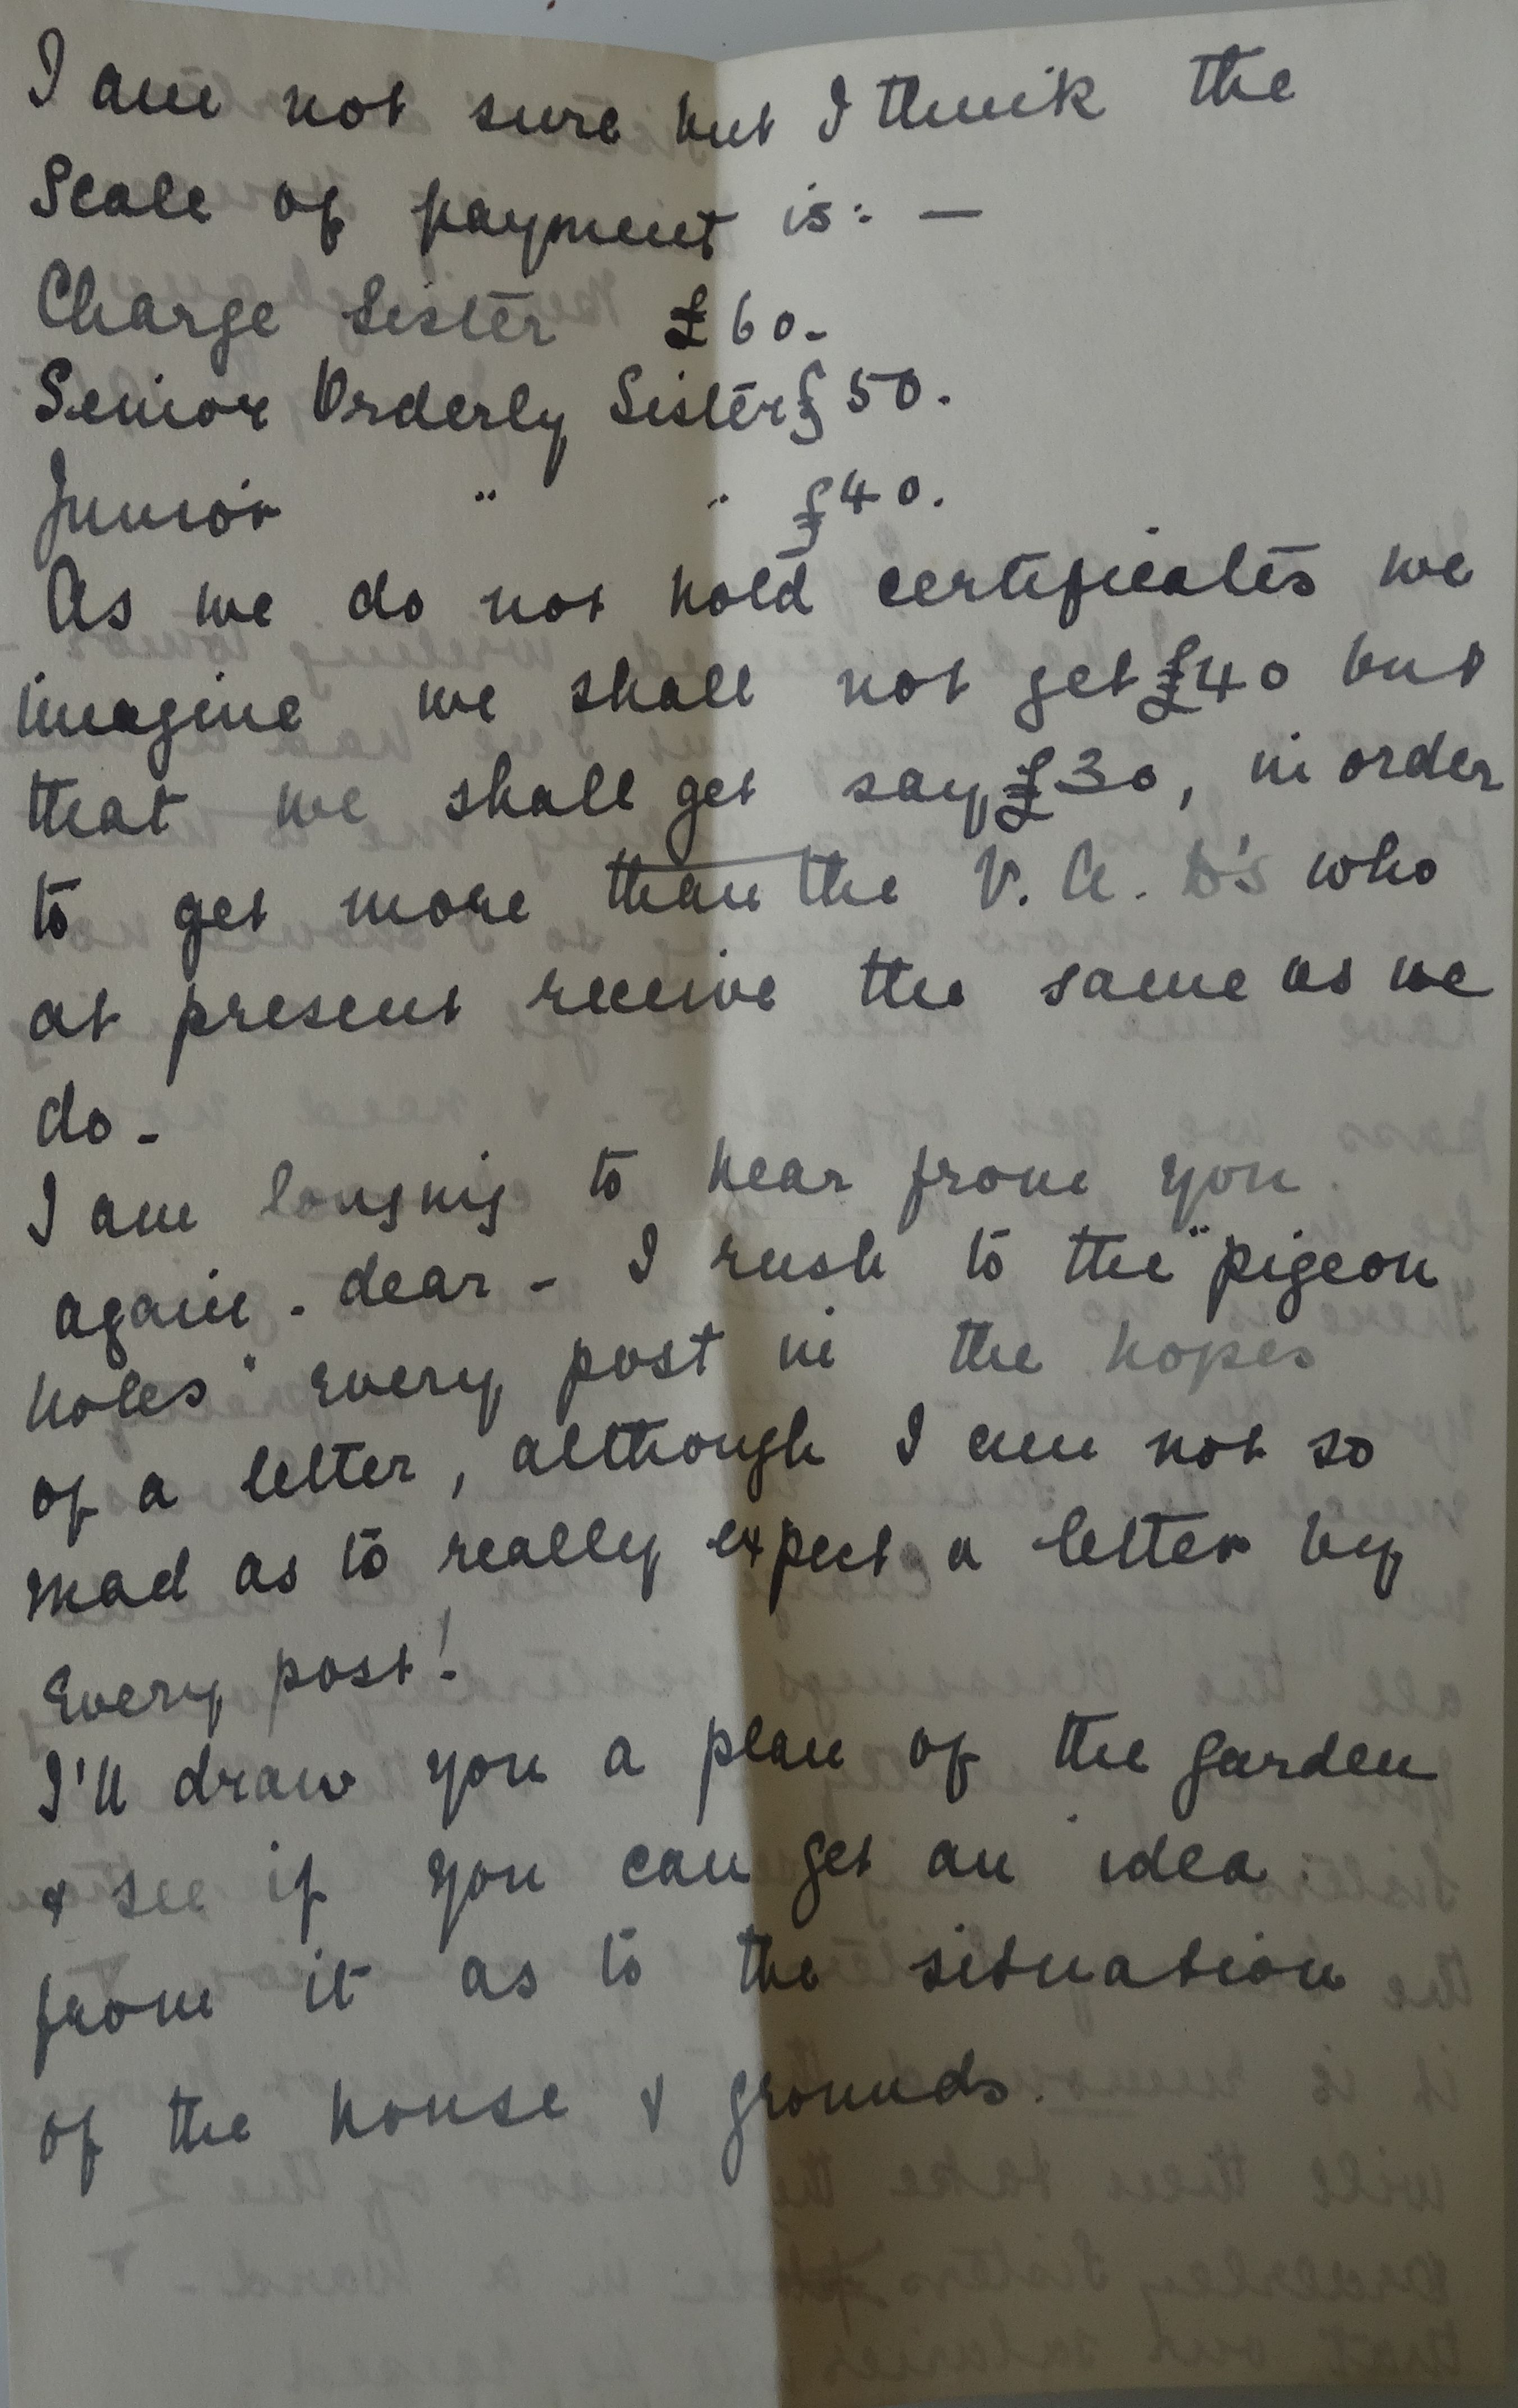 I am not sure but I think the
Scale of payment is: —
Charge Sister £60.
Senior Orderly Sister £50.
Junior " " £40.
As we do not hold certificates we
imagine we shall not get £40 but
that we shall get say £30, in order
to get more than the V. A. D's who
at present receive the same as we
do -
I am longing to hear from you
again - dear - I rush to the "pigeon
holes" every post in the hopes
of a letter, although I am not so
mad as to really expect a letter by
every post!
I'll draw you a plan of the garden
& see if you can get an idea
from it as to the situation
of the house & grounds.